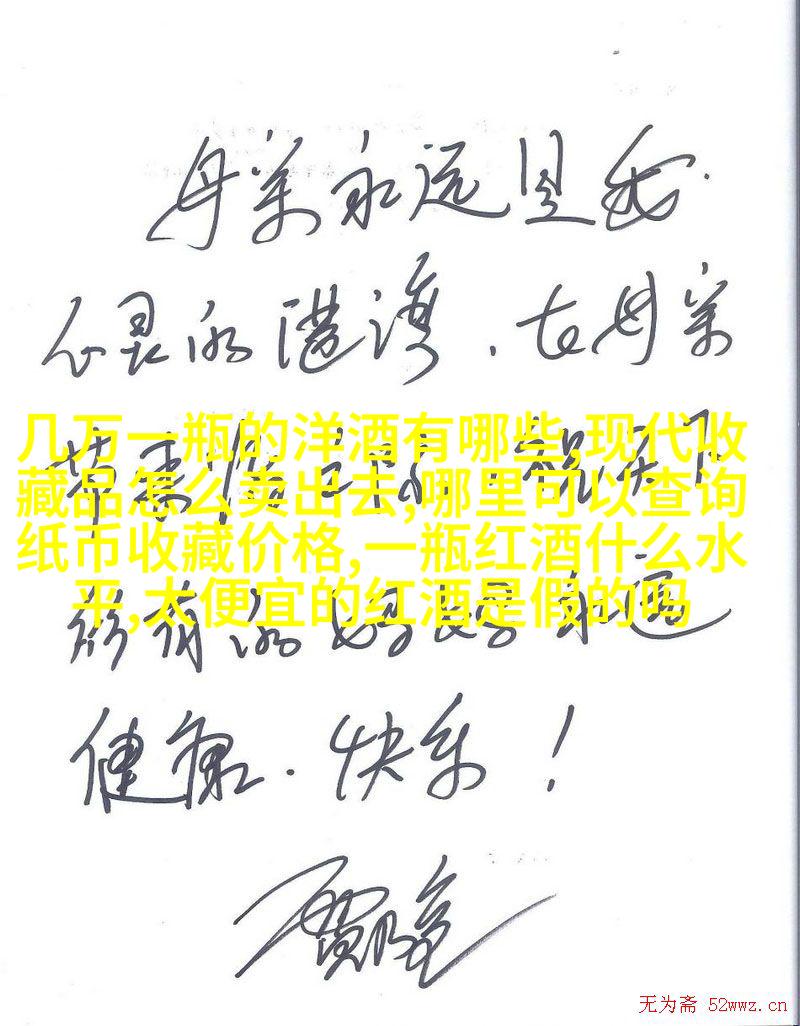 母亲永远是我
心灵的港湾.在母亲
几万一瓶的洋酒有哪些,现代收
藏品怎么卖出去,哪里可以查询
纸币收藏价格,一瓶红酒什么水
平,太便宜的红酒是假的吗
节来临之际,祝天下
所有的妈妈永远
健康.快乐!
无为斋 52wwz.cn